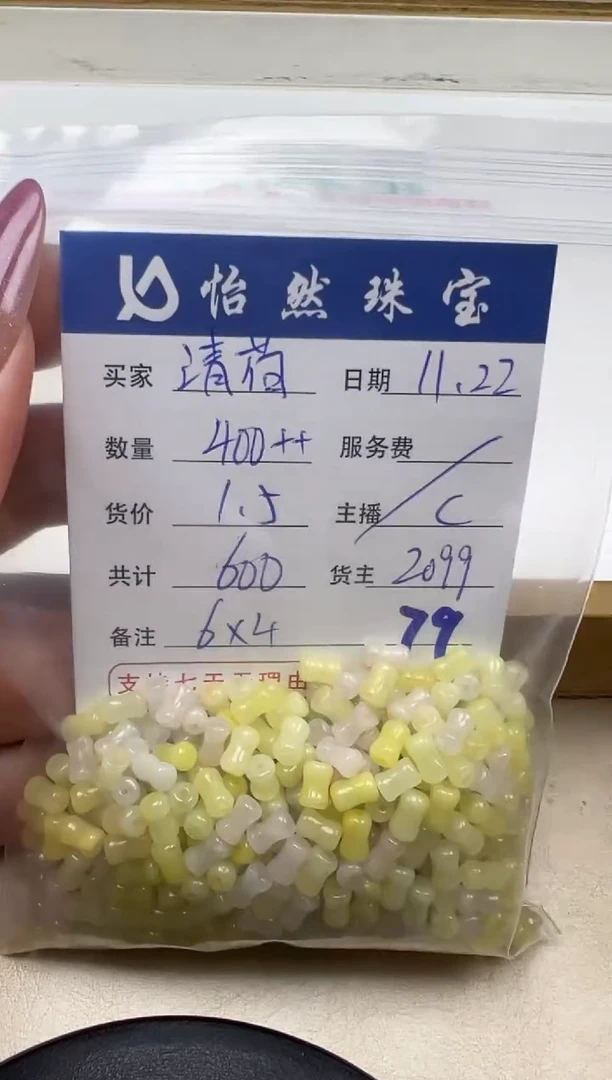 怡然珠宝
买家 清荷 日期 11.22
数量 400++ 服务费 /
货价 1.5 主播 C
共计 600 货主 2099
备注 6×4 79
支持七天无理由